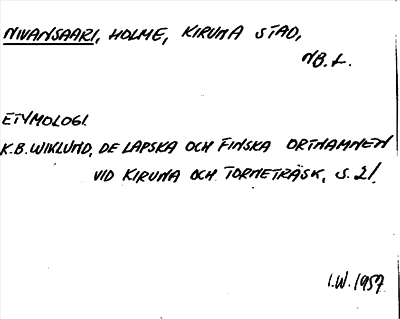 NIVANSAARI, HOLME, KIRUNA STAD,
NB. L.
ETYMOLOGI.
K.B. WIKLUND, DE LAPSKA OCH FINSKA ORTNAMNEN
VID KIRUNA OCH TORNETRÄSK, S. 21.
I.W. 1957